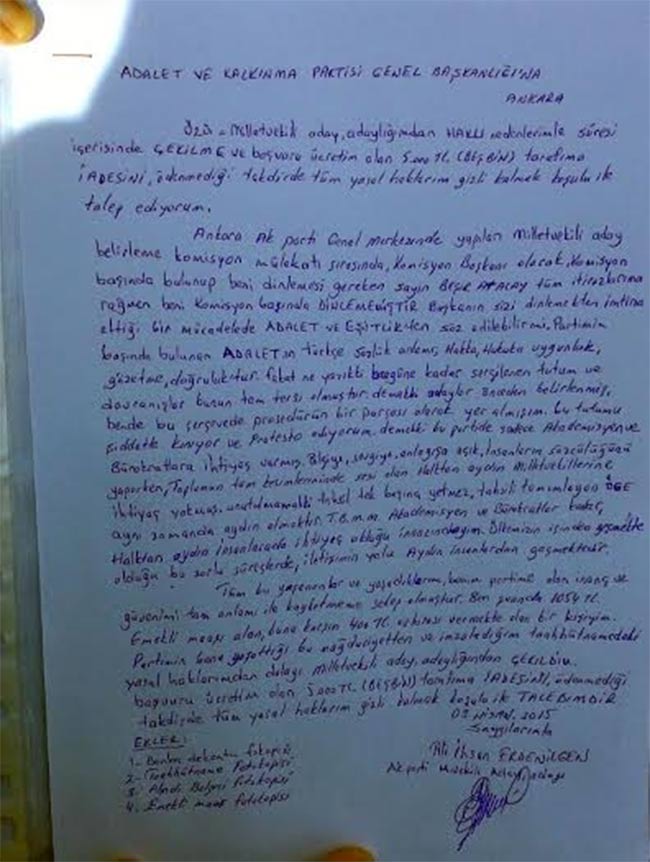 ADALET VE KALKINMA PARTİSİ GENEL BAŞKANLIĞI'NA
ANKARA
ÖZÜ = Milletvekili aday, adaylığımdan HAKLI nedenlerimle süresi
içerisinde ÇEKİLME ve başvuru ücretim olan 5.000 TL (BEŞBİN) tarafıma
İADESİNİ, ödenmediği takdirde tüm yasal haklarım gizli kalmak koşulu ile
talep ediyorum.
Ankara Ak parti Genel Merkezinde yapılan Milletvekili aday
belirleme komisyon mülakatı sırasında, Komisyon Başkanı olarak, Komisyon
başında bulunup beni dinlemesi gereken sayın BEŞİR ATALAY tüm itirazlarıma
rağmen beni Komisyon başında DİNLEMEMİŞTİR Başkanın sizi dinlemekten imtina
ettiği bir mücadelede ADALET VE EŞİTLİK'ten söz edilebilirmi, Partimin
başında bulunan ADALET'in türkçe sözlük anlamı, Hakka, Hukuka uygunluk,
gözetme, doğruluktur. fakat ne yazıkki bugüne kadar sergilenen tutum ve
davranışlar bunun tam tersi olmuştur. demekki adaylar önceden belirlenmiş,
bende bu çerçevede prosedürün bir parçası olarak yer almışım. bu tutumu
şiddetle kınıyor ve Protesto ediyorum. demekki bu partide sadece Akademisyen ve
Bürokratlara ihtiyaç varmış. Bilgiye, sevgiye, anlayışa açık, İnsanların sözcülüğünü
yaparken, Toplumun tüm kesimlerininde sesi olan Halktan aydın Milletvekillerine
ihtiyaç yokmuş. unutulmamalıki tahsil tek başına yetmez, tahsili tamamlayan ÖGE
aynı zamanda aydın olmaktır. T.B.M.M. Akademisyen ve Bürokratlar kadar,
Halktan aydın insanlarada ihtiyaç olduğu inancındayım. Ülkemizin içinden geçmekte
olduğu bu zorlu süreçlerde, iletişimin yolu Aydın insanlardan geçmektedir.
Tüm bu yaşananlar ve yaşadıklarım, benim partime olan inanç ve
güvenimi tam anlamı ile kaybetmeme sebep olmuştur. Ben şuanda 1054 TL.
Emekli maaşı alan, buna karşın 400 TL ev kirası vermekte olan bir kişiyim.
Partimin bana yaşattığı bu mağduriyetten ve imzaladığım taahhütnamedeki
yasal haklarımdan dolayı Milletvekili aday, adaylığından ÇEKİLDİM.
başvuru ücretim olan 5.000 TL (BEŞBİN) tarafıma İADESİNİ, ödenmediği
takdirde tüm yasal haklarım gizli kalmak koşulu ile TALEBİMDİR
03 NİSAN. 2015
Saygılarımla
EKLER:
1- Banka dekontu fotokopisi
2- Taahhütname fotokopisi
3- Alındı Belgesi fotokopisi
4. Emekli maaş fotokopisi
Ali İhsan ERDENİLGEN
Ak parti Milletvekili Aday Adayı